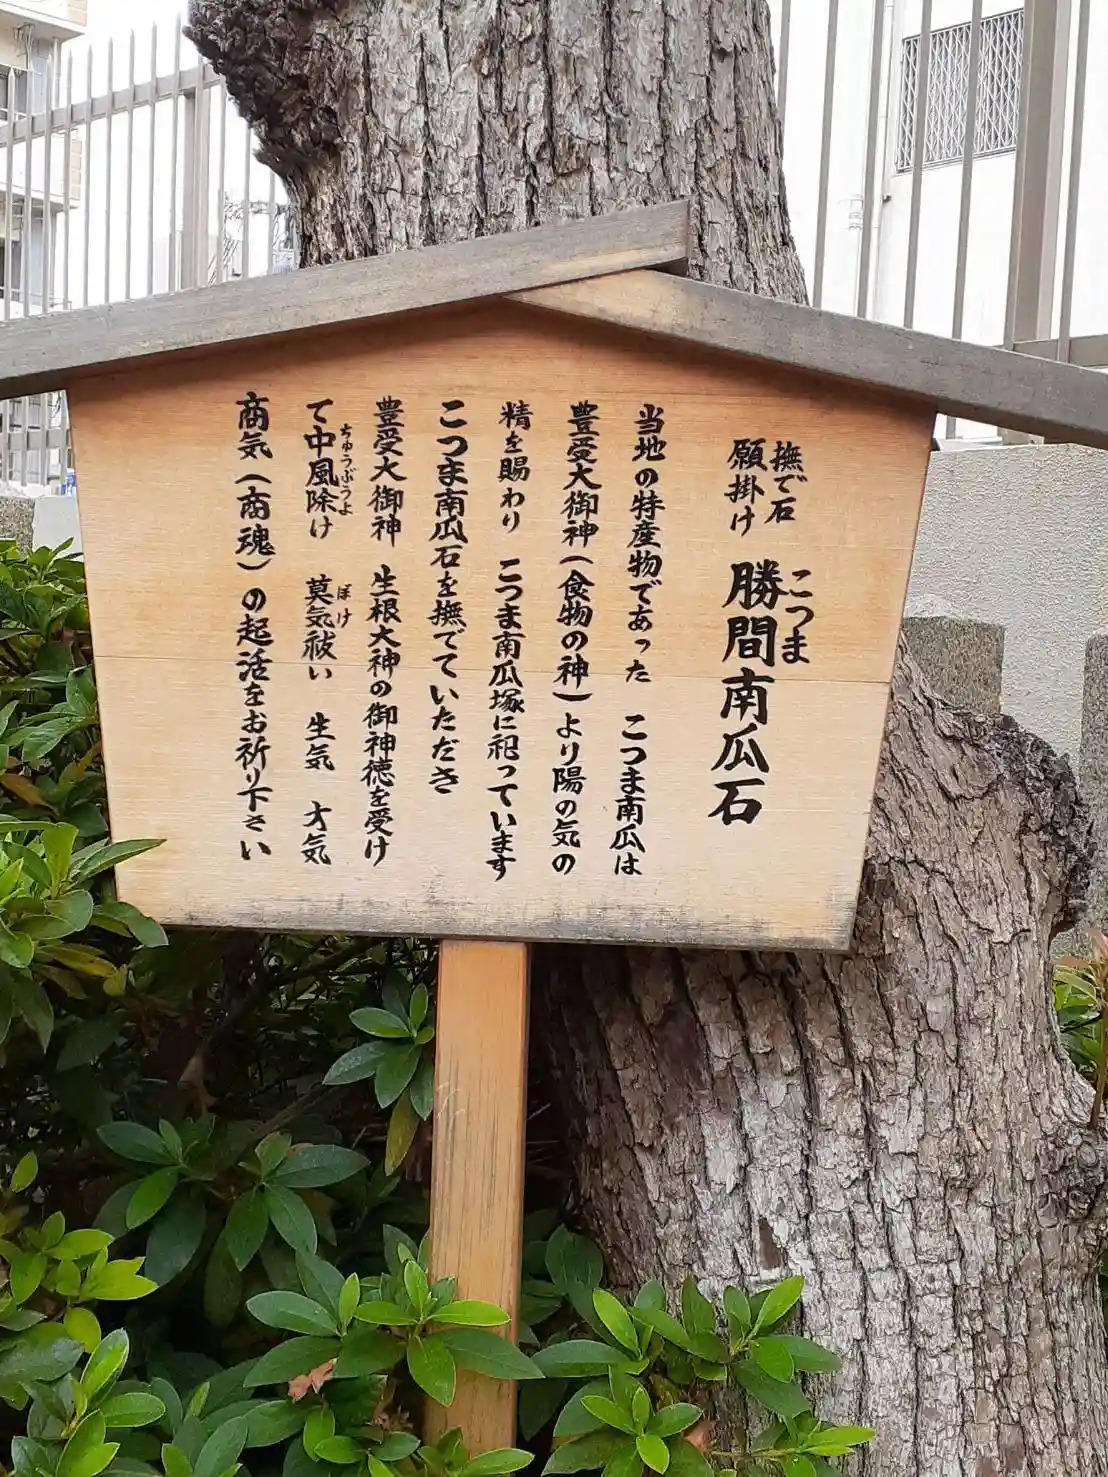 撫で石
願掛け
こつま
勝間南瓜石
当地の特産物であった こつま南瓜は
豊受大御神(食物の神)より陽の気の
精を賜わり こつま南瓜塚に祀っています
こつま南瓜石を撫でていただき
豊受大御神 生根大神の御神徳を受け
ちゅうぶうよ ぼけ
て中風除け 莫気祓い 生気 才気
商気(商魂)の起活をお祈り下さい